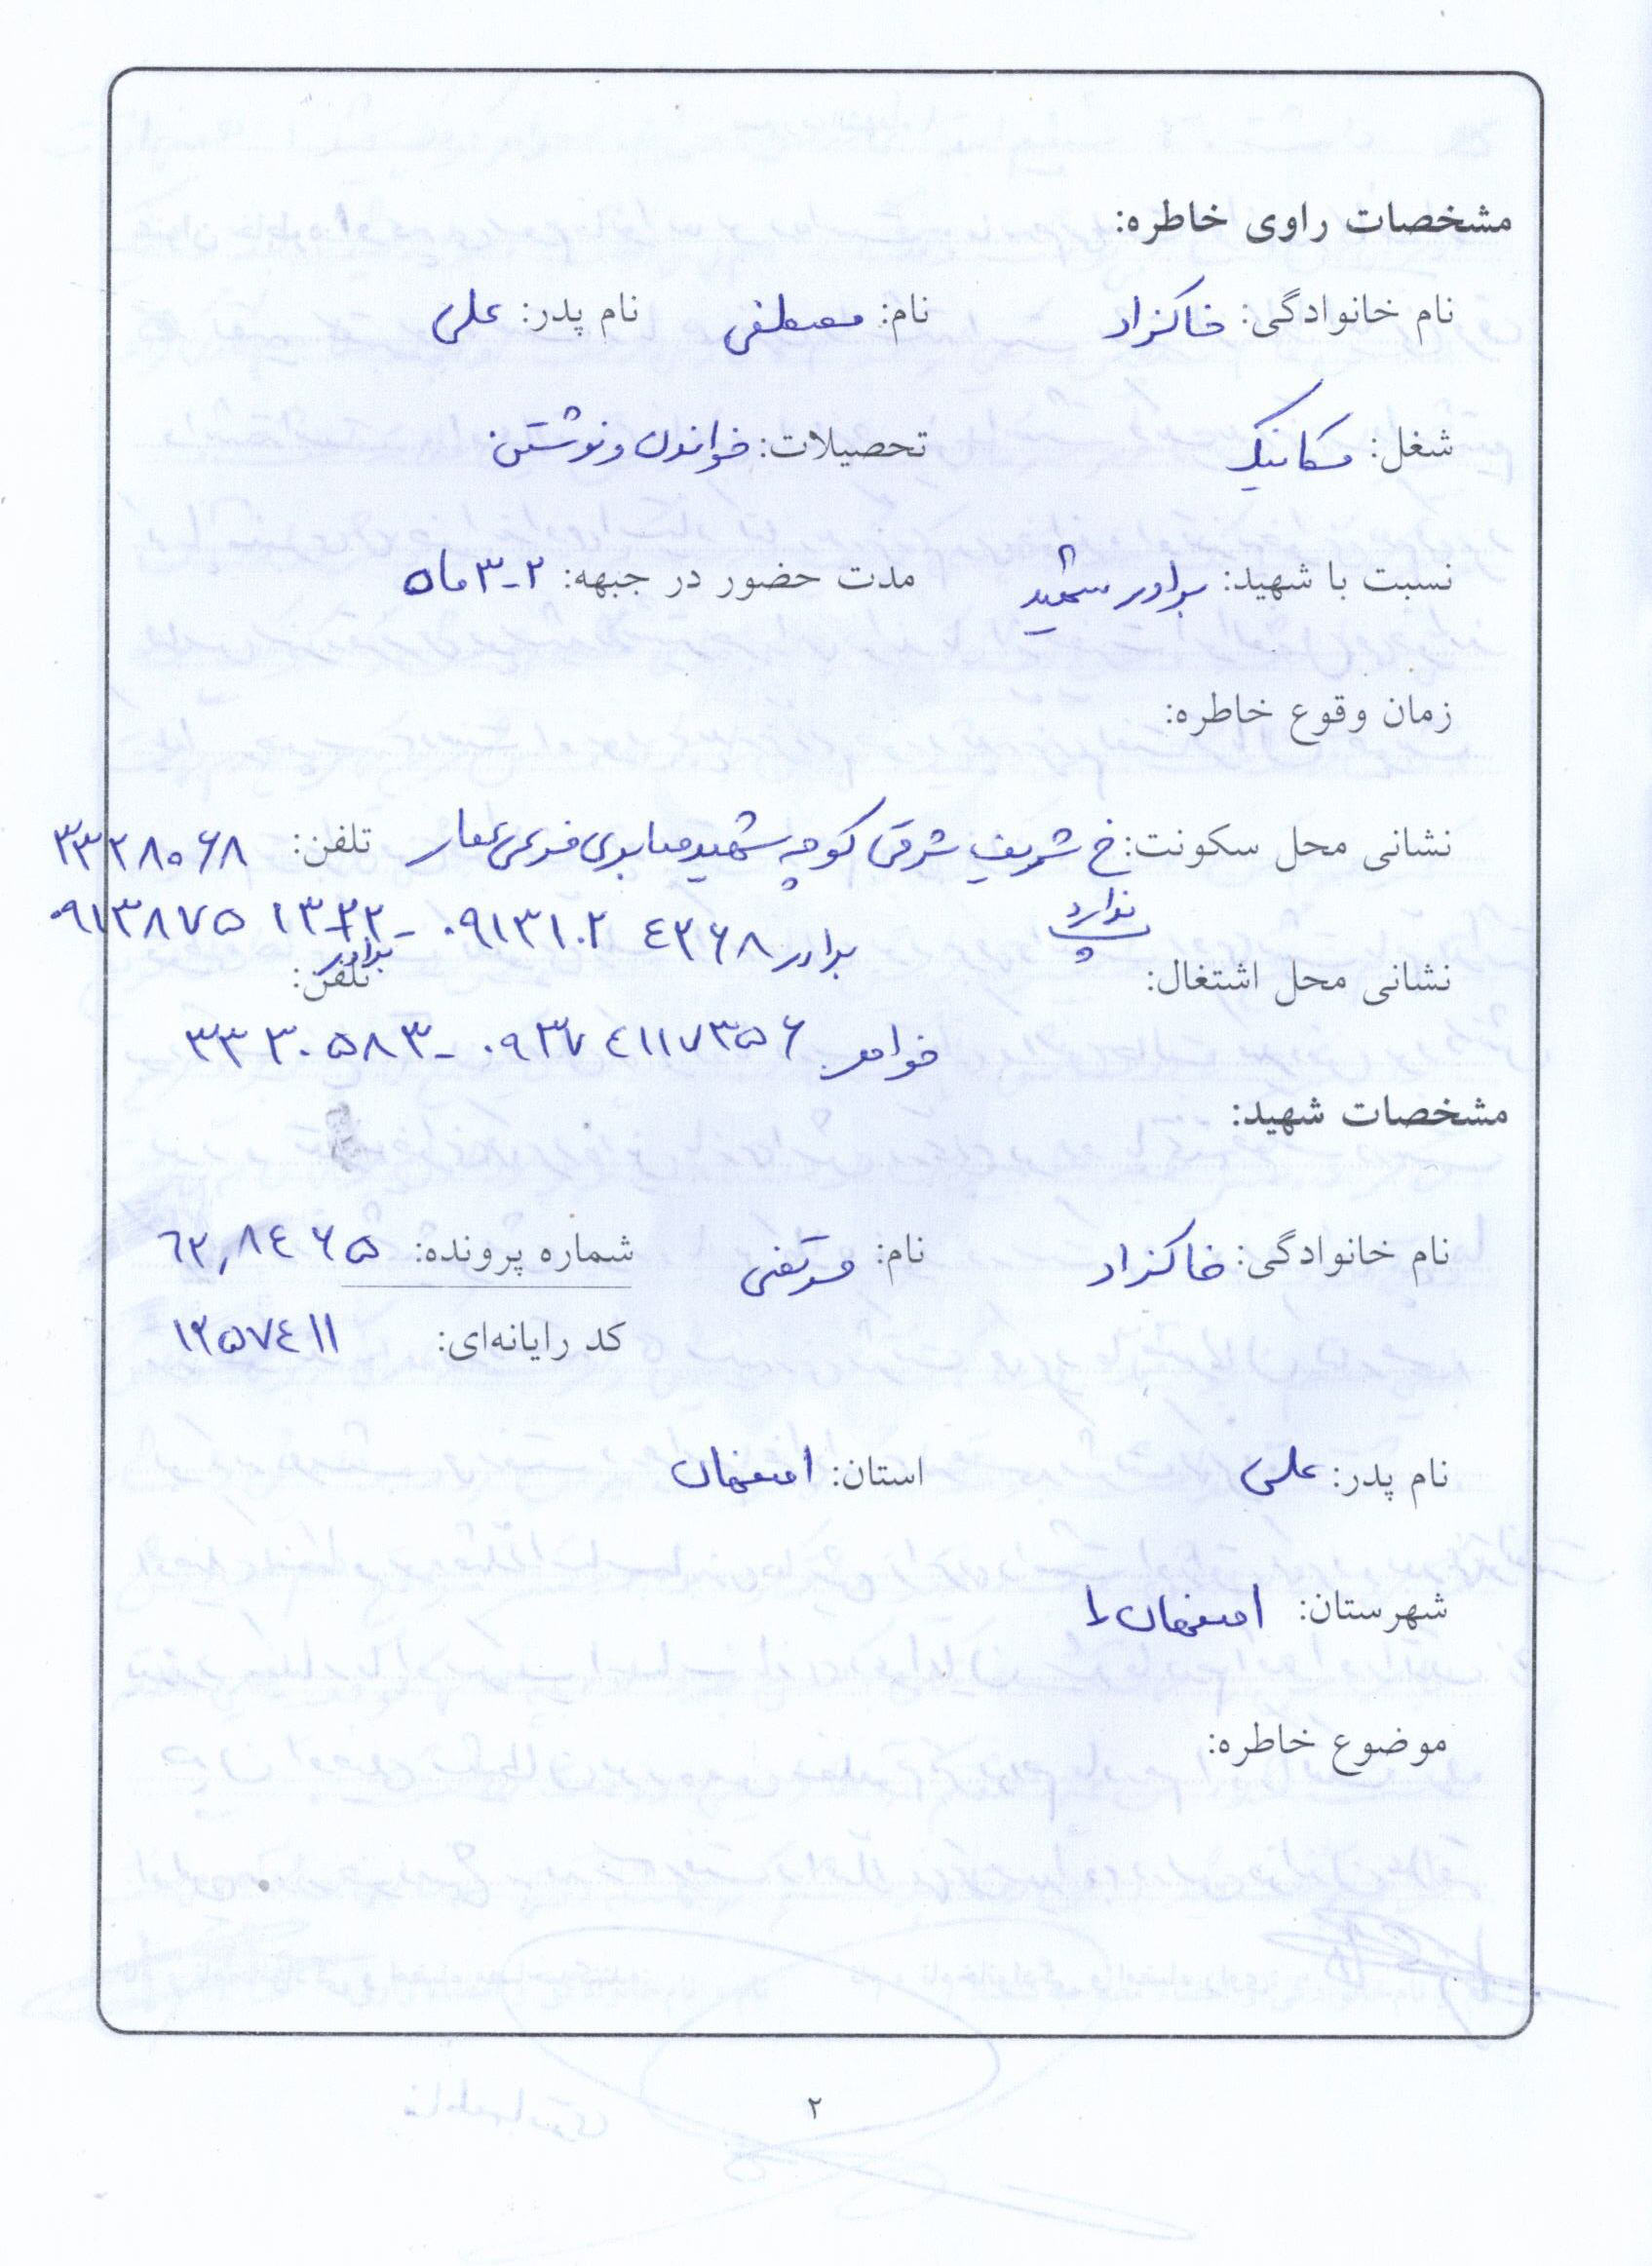 مشخصات راوی خاطره:
نام خانوادگی: خاکزاد نام: مصطفی نام پدر: علی
شغل: مکانیک تحصیلات: خواندن و نوشتن
نسبت با شهید: برادر شهید مدت حضور در جبهه: ۲-۳ ماه
زمان وقوع خاطره:
نشانی محل سکونت: خ شریف شرقی کوچه شهید صابری فرعی عمار تلفن: ۳۳۲۸۰۶۸
ندارد برادر ۰۹۱۳۱۰۲۴۲۶۸ - ۰۹۱۳۸۷۵۱۳۲۲ برادر
نشانی محل اشتغال: تلفن:
خواهر ۰۹۳۷۴۱۱۷۳۵۶ - ۳۳۲۰۵۸۳
مشخصات شهید:
نام خانوادگی: خاکزاد نام: مرتضی شماره پرونده: ۶۲,۸۴۶۵
کد رایانه‌ای: ۱۲۵۷۴۱۱
نام پدر: علی استان: اصفهان
شهرستان: اصفهان ۱
موضوع خاطره:
۲